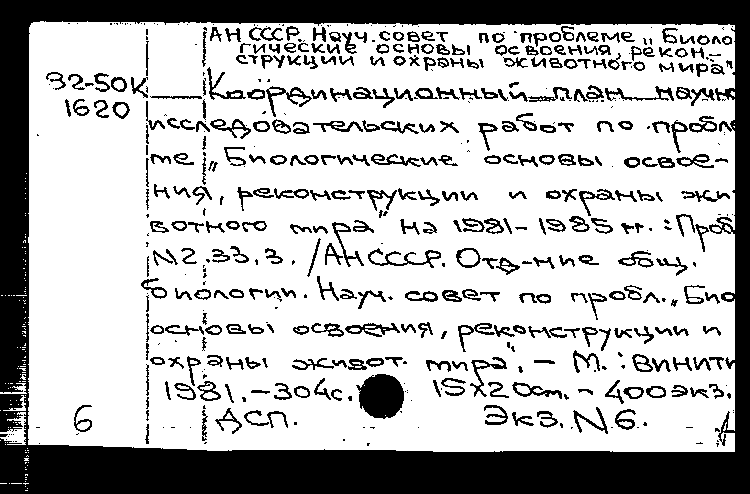 АН СССР. Науч. совет по проблеме „Биоло
гические основы освоения, рекон-
струкции и охраны животного мира".
92-50К
1620
Координационный план научно
исследовательских работ по пробле
ме „Биологические основы освое-
ния, реконструкции и охраны жи
вотного мира" на 1981-1985 гг. : Проб
N2.33.3. /АН СССР. Отд-ние общ.
биологии. Науч. совет по пробл. „Био
основы освоения, реконструкции и
охраны живот. мира". – М. : ВИНИТИ
1981. – 304с. 15х20см. – 400экз.
6 ДСП. Экз. N6.